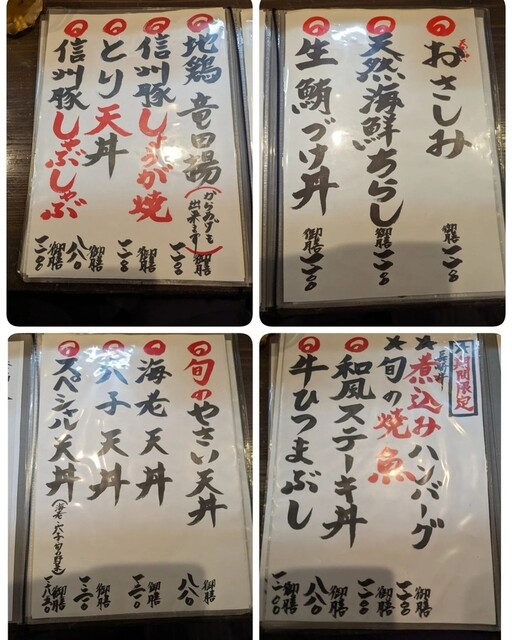 地鶏 竜田揚
(からあげも
出来ます)
御膳
一一〇〇
信州豚しょうが焼
御膳
一一〇〇
とり天丼
御膳
八八〇
信州豚しゃぶしゃぶ
御膳
一一〇〇
おさしみ
御膳
天然海鮮ちらし
御膳
生鮪づけ丼
御膳
旬のやさい天丼
御膳
八八〇
海老天丼
御膳
穴子天丼
御膳
スペシャル天丼
(海老・穴子・旬の野菜)
御膳
期間限定
煮込みハンバーグ
御膳
旬の焼魚
御膳
和風ステーキ丼
御膳
牛ひつまぶし
御膳